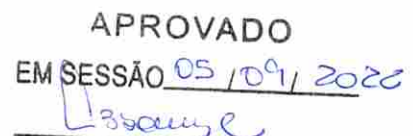 APROVADO
EM SESSÃO 05/09/2022